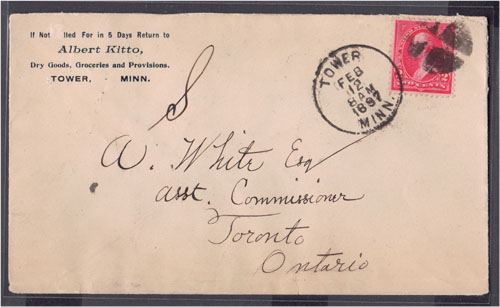 If Not lled For in 5 Days Return to
Albert Kitto,
Dry Goods, Groceries and Provisions.
TOWER, MINN.
TOWER
FEB
12
8 AM
1897
MINN.
S
A. White Esq
asst. Commissioner
Toronto
Ontario